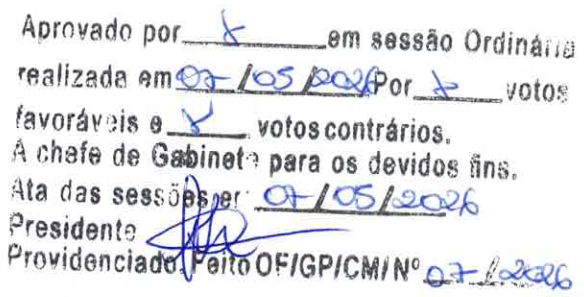 Aprovado por em sessão Ordinária
realizada em 07/05/2026 Por votos
favoráveis e votos contrários.
A chefe de Gabinete para os devidos fins.
Ata das sessões er 07/05/2026
Presidente
Providenciado. Feito OF/GP/CM/Nº 07/2026